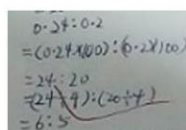 0.24:0.2
=(0.24×100):(0.2×100)
=24:20
=(24÷4):(20÷4)
=6:5